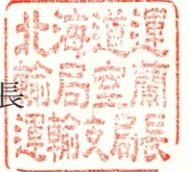 長
北海道運
輸局室蘭
運輸支局長